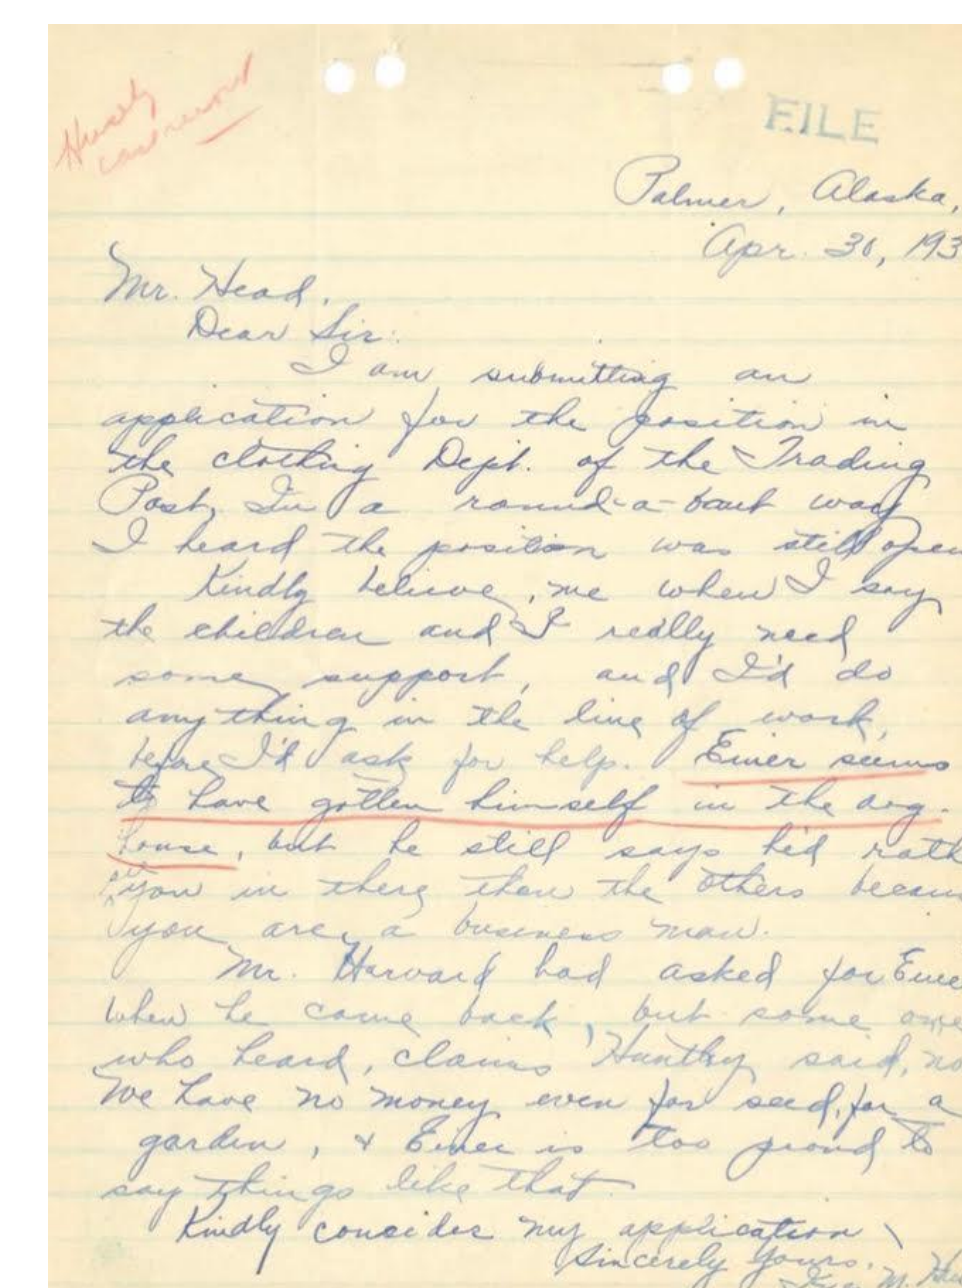 FILE
Palmer, Alaska,
Apr. 30, 193
Mr. Head,
Dear Sir:
I am submitting an
application for the position in
the clothing Dept. of the Trading
Post. In a round-a-bout way
I heard the position was still open
Kindly believe, me when I say
the children and I really need
some support, and I'd do
anything in the line of work,
before I'd ask for help. Einer seems
to have gotten himself in the dog-
house, but he still says he'd rath
you in there than the others becau
you are a business man.
Mr. Harvard had asked for Eine
when he came back, but some one
who heard, claims Huntley said, no
We have no money even for seed, for a
garden, & Einer is too proud to
say things like that.
Kindly consider my application
Sincerely Yours,